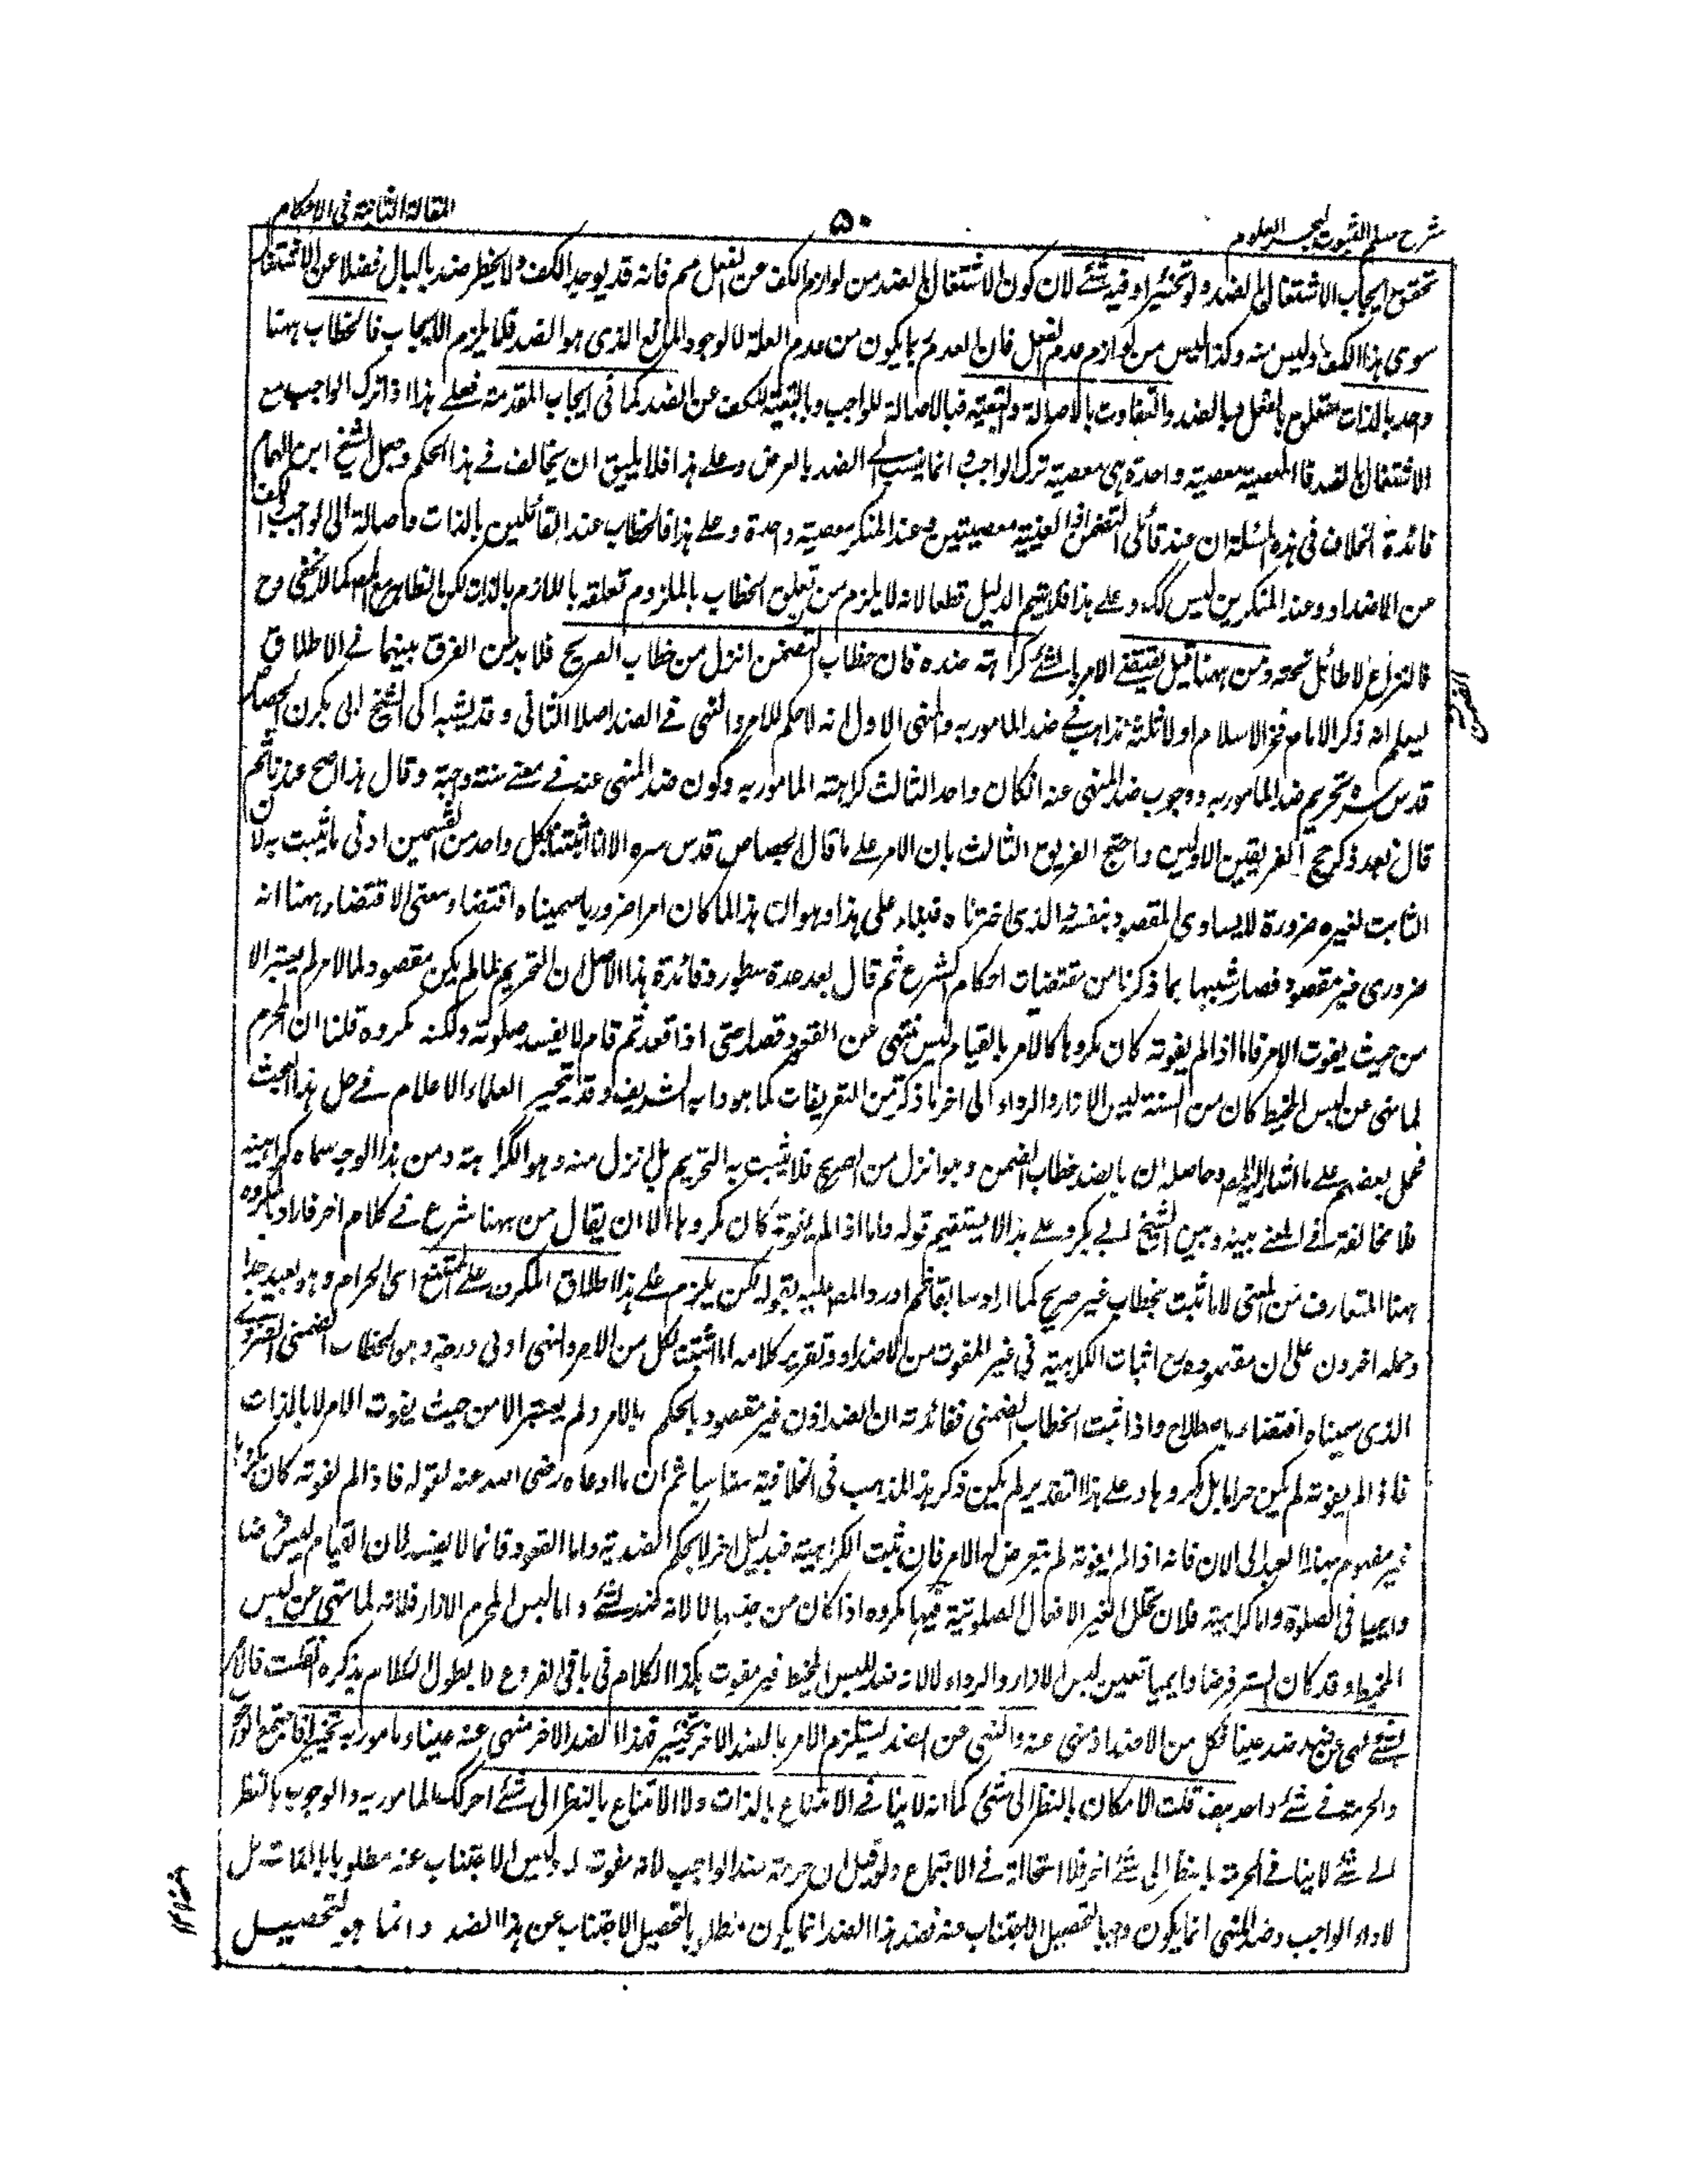 شرح مسلم الثبوت لبحر العلوم
٥٠
المقالة الثانية فى الاحكام
تحقق ايجاب الاشتغال بالضد ولو تخييرا وفيه شئ لان كون الاشتغال بالضد من لوازم الكف عن الفعل مم فانه قد يوجد الكف ولا يخطر ضد بالبال فضلا عن الاشتغال
سوى هذا الكف وليس منه وكذا ليس من لوازم عدم الفعل فان العدم ربما يكون من عدم العلة لا لوجود المانع الذى هو الضد فلا يلزم الايجاب فالخطاب ههنا
واحد بالذات متعلق بالفعل وبالضد والتفاوت بالاصالة والتبعية فبالاصالة للواجب وبالتبعية للكف عن الضد كما فى ايجاب المقدمة فعلى هذا اذا ترك الواجب مع
الاشتغال بالضد فالمعصية معصية واحدة هى معصية ترك الواجب وانما ينسب الى الضد بالعرض وعلى هذا فلا يليق ان يخالف فى هذا الحكم وجعل الشيخ ابن الهمام
فائدة الخلاف فى هذه المسئلة ان عند قائلى التضمن او العينية معصيتين وعند المنكر معصية واحدة وعلى هذا فالخطاب عند القائلين بالذات واصالة الى الواجب والكف
عن الاضداد وعند المنكرين ليس كك وعلى هذا فلا يتم الدليل قطعا لانه لا يلزم من تعلق الخطاب بالملزوم تعلقه باللازم بالذات لكن الظاهر مع المص كما لا يخفى وح
فالنزاع لا طائل تحته ومن ههنا قيل يقتضى الامر بالشئ كراهة ضده فان خطاب التضمن انزل من خطاب الصريح فلا بد من الفرق بينهما فى الاطلاق
ليعلم انه ذكر الامام فخر الاسلام اولا ثلثة مذاهب فى ضد المامور به والمنهى الاول انه لا حكم للامر والنهى فى الضد اصلا الثانى وقد نسبه الى الشيخ ابى بكر الجصاص
قدس سره تحريم ضد المامور به ووجوب ضد المنهى عنه ان كان واحدا الثالث كراهة المامور به وكون ضد المنهى عنه فى معنى سنة واجبة وقال هذا اصح عندنا ثم
قال بعد ذكر حجج الفريقين الاولين واحتج الفريق الثالث بان الامر على ما قال الجصاص قدس سره الا انا اثبتنا بكل واحد من القسمين ادنى ما يثبت به لان
الثابت لغيره ضرورة لا يساوى المقصود بنفسه والذى اخترناه فبناء على هذا وهو ان هذا لما كان امرا ضروريا سميناه اقتضاء ومعنى الاقتضاء ههنا انه
ضرورى غير مقصود فصار شبيها بما ذكرنا من مقتضيات احكام الشرع ثم قال بعد عدة سطور وفائدة هذا الاصل ان التحريم لما لم يكن مقصودا بالامر لم يعتبر الا
من حيث يفوت الامر فاما اذا لم يفوته كان مكروها كالامر بالقيام ليس بنهى عن القعود قصدا حتى اذا قعد ثم قام لا يفسد صلوته ولكنه مكروه قلنا ان المحرم
لما نهى عن لبس المخيط كان من السنة لبس الازار والرداء الى اخر ما ذكر من التفريعات كما هو دابه الشريف وقد تحير العلماء الاعلام فى حل هذا المبحث
فحمل بعضهم على ما اشار اليه المص وحاصله ان بالضد خطاب الضمن وهو انزل من الصريح فلا يثبت به التحريم بل انزل منه وهو الكراهة ومن هذا الوجه سماه كراهية
فلا مخالفة فى المعنى بينه وبين الشيخ ابى بكر وعلى هذا لا يستقيم قوله واما اذا لم يفوته كان مكروها الا ان يقال من ههنا شرع فى كلام اخر فاراد بالمكروه
ههنا المتعارف من المعنى لا ما ثبت بخطاب غير صريح كما اراد سابقا ثم اورد المص عليه بقوله لكن يلزم على هذا اطلاق المكروه على الممتنع اى الحرام وهو بعيد جدا
وحمله اخرون على ان مقصوده اثبات الكراهية فى غير المفوت من الاضداد وتقرير كلامه انا اثبتنا لكل من الامر والنهى ادنى درجة وهى الخطاب الضمنى الضرورى
الذى سميناه اقتضاء بالاصطلاح واذا ثبت الخطاب الضمنى ففائدته ان الضد اذن غير مقصود بالحكم بالامر ولم يعتبر الا من حيث يفوت الامر لا بالذات
فاذا لم يفوته لم يكن حراما بل مكروها وعلى هذا التقدير لم يكن ذكر هذا المذهب فى الخلافية مناسبا ثم ان ما ادعاه رضى الله عنه لقوله فاذا لم يفوته كان مكروها
غير مفهوم بهذا العبد الى الان فانه اذا لم يفوته لم يتعرض له الامر فان ثبت الكراهية فبدليل اخر لا بحكم الضدية واما القعود قائما لا يفسد لان القيام ليس فرضا
دائميا فى الصلوة واما كراهيته فلان تخلل الغير الافعال الصلوتية فيها مكروه اذا كان من جنسها لا لانه كضد لشئ واما لبس المحرم الازار فلانه لما نهى عن لبس
المخيط وقد كان الستر فرضا دائميا تعين لبس الازار والرداء لا لانه ضد للبس المخيط غير مفوت هكذا الكلام فى باقى الفروع لا يطول الكلام بذكره فان قلت فالامر
بشئ نهى عن ضده عينا فكل من الاضداد منهى عنه والنهى عن الضد يستلزم الامر بالضد الاخر تخييرا فهذا الضد الاخر منهى عنه عينا ومامور به تخييرا فاجتمع الوجوب
والحرمة فى شئ واحد هف قلت الامكان بالنظر الى شئ كما انه لا ينافى الامتناع بالذات ولا الامتناع بالنظر الى شئ اخر كك المامور به والوجوب بالنظر
الى شئ لا ينافى الحرمة بالنظر الى شئ اخر فلا استحالة فى الاجتماع ولو قيل ان حرمة ضد الواجب لانه مفوت له وليس الاجتناب عنه مطلوبا بالذات بل
لاداء الواجب وضد المنهى انما يكون واجبا لتحصيل الاجتناب عنه فضد هذا الضد انما يكون مطلوبا لتحصيل الاجتناب عن هذا الضد وانما هو لتحصيل